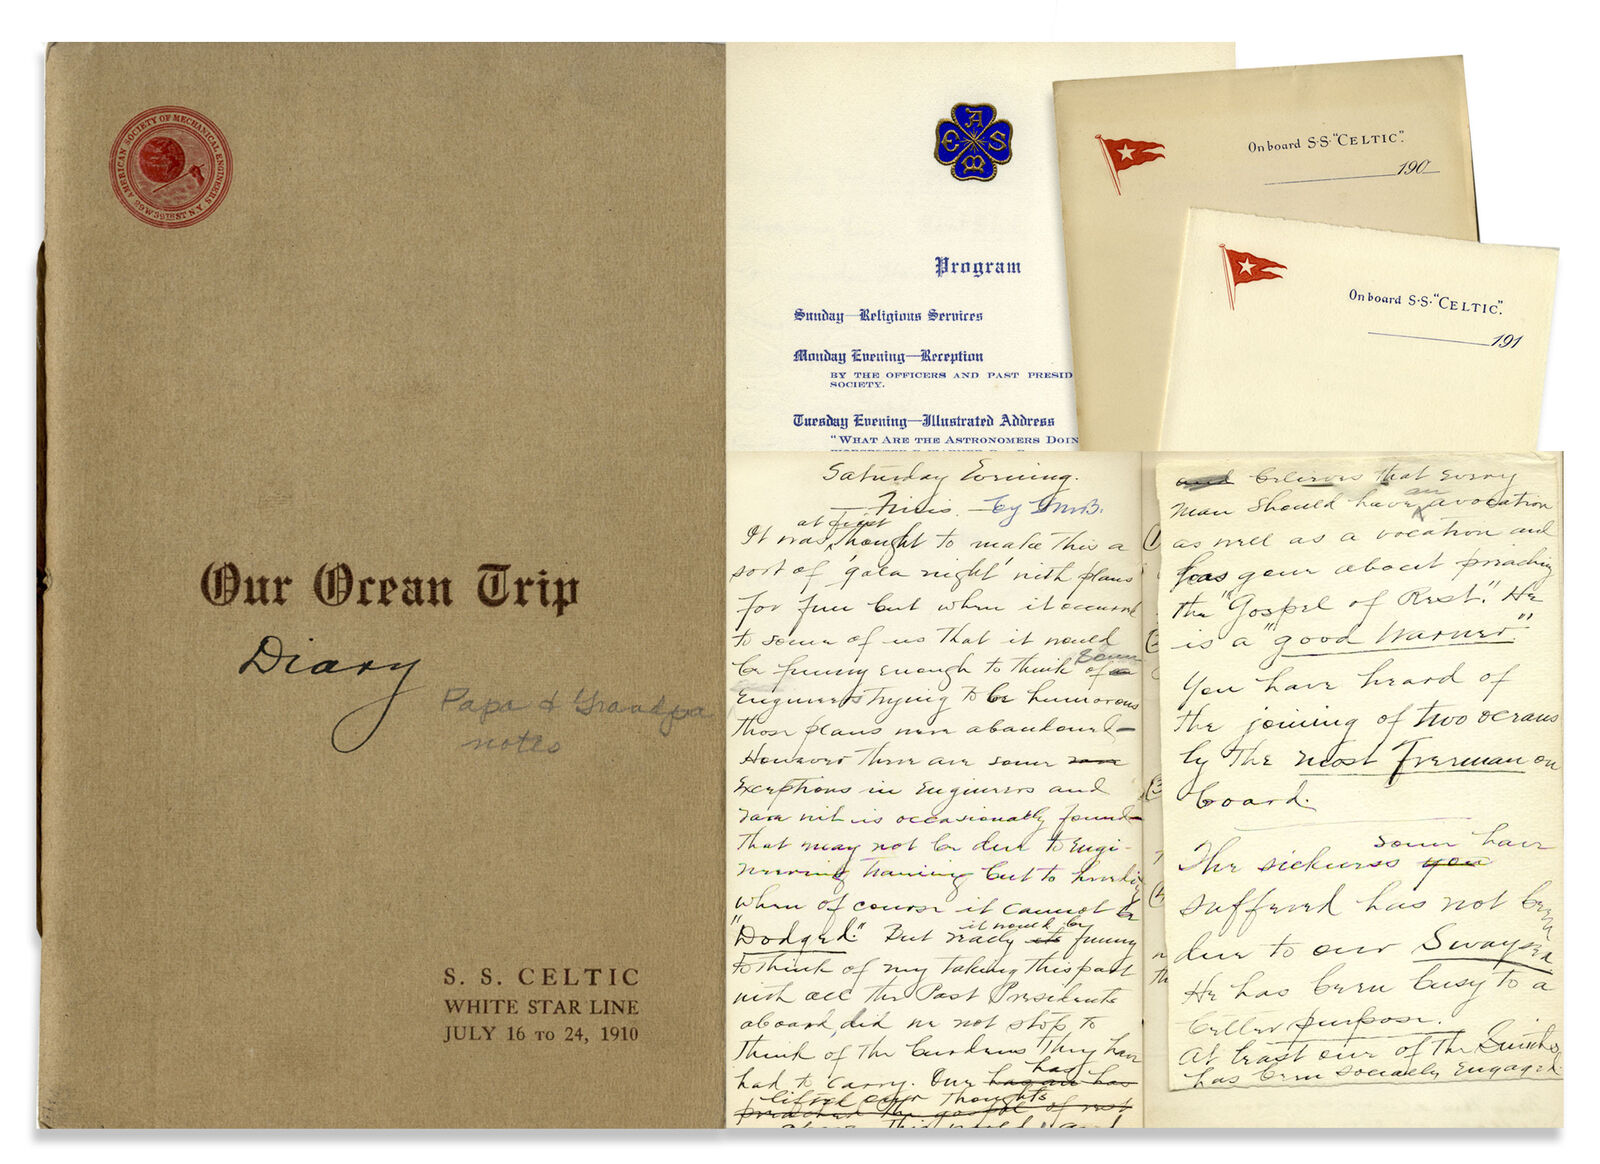 AMERICAN SOCIETY OF MECHANICAL ENGINEERS
29 W 39TH ST N.Y.
Our Ocean Trip
Diary
Papa & Grandpa
notes
S. S. CELTIC
WHITE STAR LINE
JULY 16 TO 24, 1910
A S M E
Program
Sunday—Religious Services
Monday Evening—Reception
BY THE OFFICERS AND PAST PRESID
SOCIETY.
Tuesday Evening—Illustrated Address
"WHAT ARE THE ASTRONOMERS DOIN
On board S·S·"CELTIC".
190
On board S·S·"CELTIC".
191
Saturday Evening.
Finis. by
at first
It was thought to make this a
sort of 'gala night' with plans
for fun but when it occurred
to some of us that it would
be funny enough to think of some
Engineers trying to be humorous
those plans were abandoned—
However there are some rare
Exceptions in Engineers and
rare wit is occasionally found—
that may not be due to Engi-
neering training but to
when of course it cannot be
"Dodged." But really it would be funny
to think of my taking this part
with all the Past Presidents
aboard, did we not stop to
think of the burdens they have
had to carry. One has
lifted our thoughts
preached the gospel of rest
above this world and
and believes that every
man should have an avocation
as well as a vocation and
has gone about preaching
the "Gospel of Rest". He
is a "good Warner"
You have heard of
the joining of two oceans
by the most Freeman on
board.
The sickness you some have
suffered has not been
due to our Swayzea
He has been busy to a
better purpose.
At least one of the Smiths
has been socially Engaged
(1
(2
(3
(4